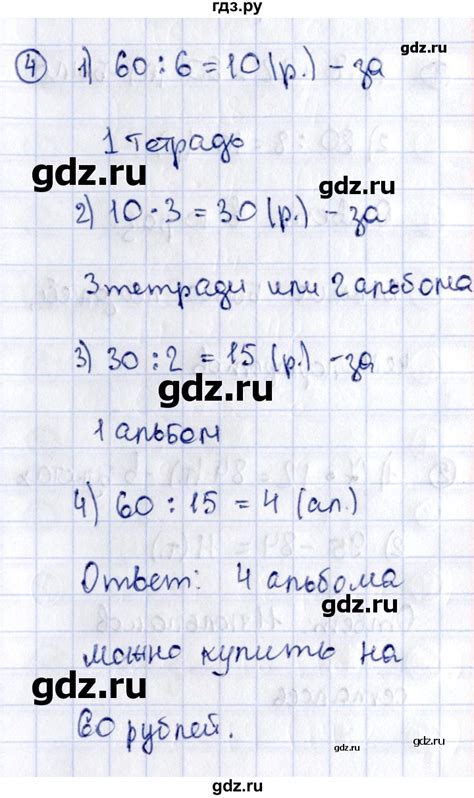 гдз.ру
④ 1) 60 : 6 = 10 (р.) – за
gdz.ru
1 тетрадь
gdz.ru
gdz.ru
2) 10 · 3 = 30 (р.) – за
gdz.ru
3 тетради или 2 альбома
3) 30 : 2 = 15 (р.) – за
gdz.ru
gdz.ru
1 альбом
gdz.ru
4) 60 : 15 = 4 (ал.)
gdz.ru
Ответ: 4 альбома
gdz.ru
можно купить на
gdz.ru
60 рублей.
gdz.ru
gdz.ru
gdz.ru